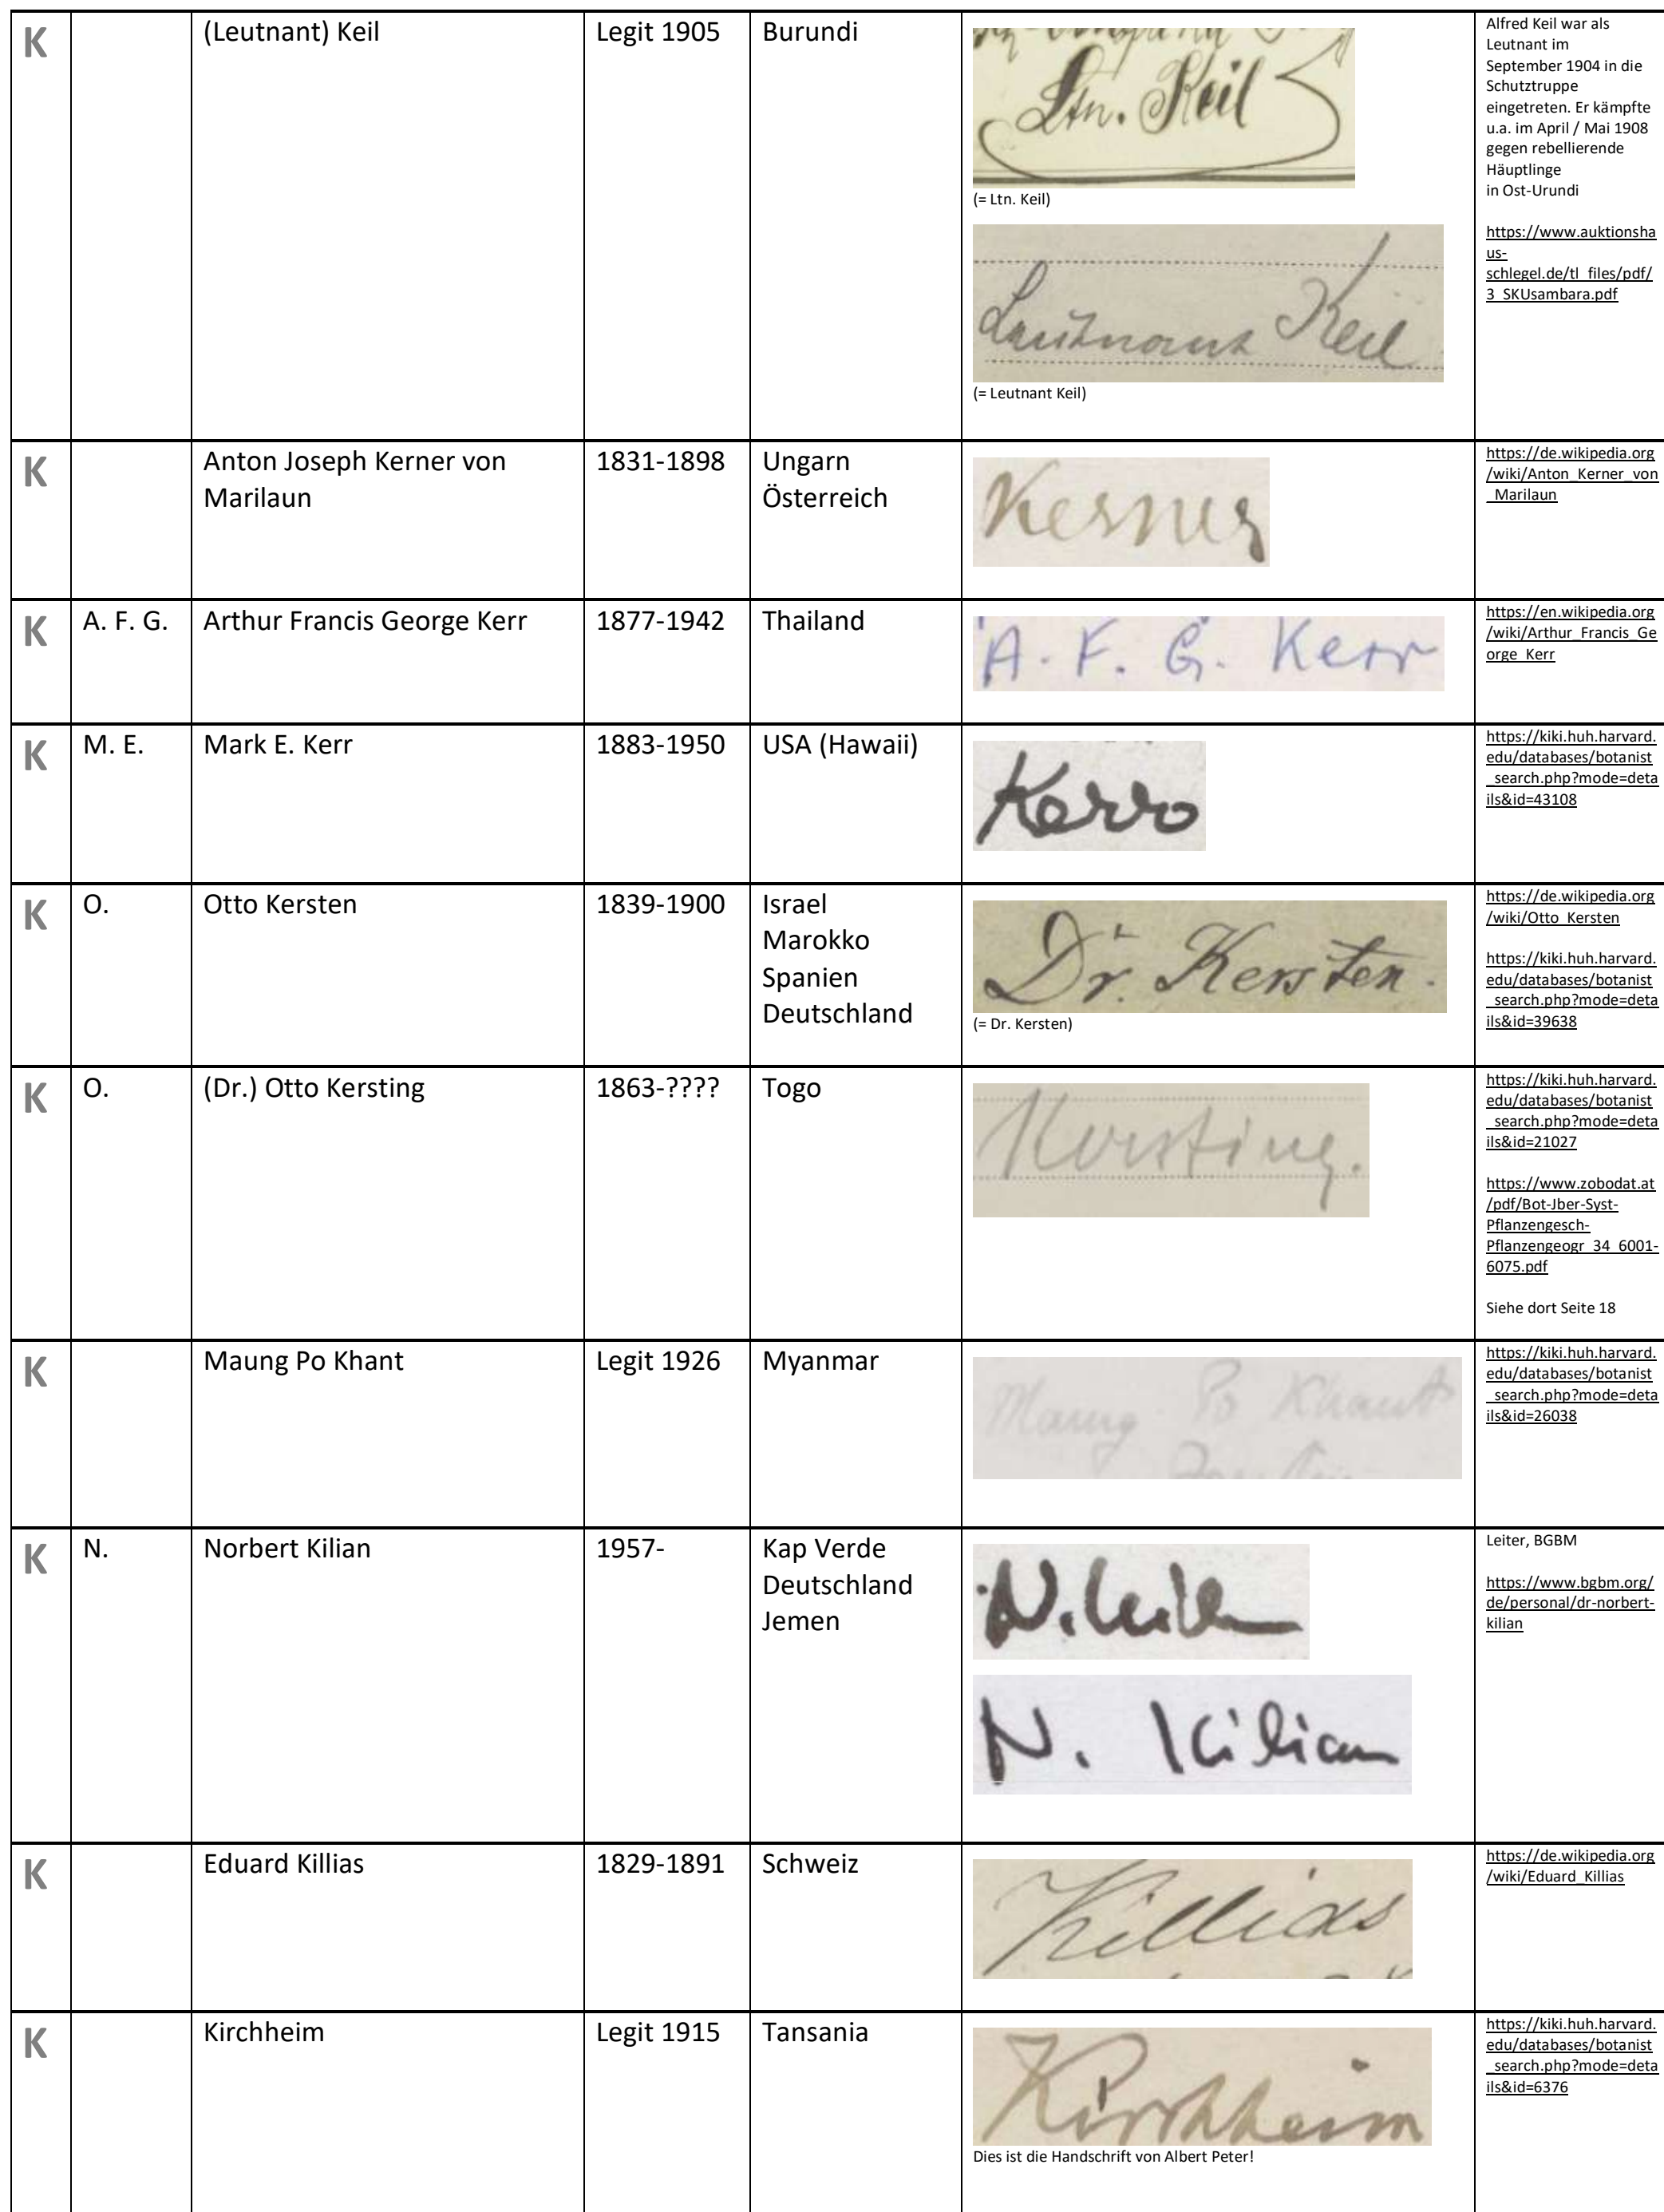 K
(Leutnant) Keil
Legit 1905
Burundi
Ltn. Keil
(= Ltn. Keil)
Leutnant Keil
(= Leutnant Keil)
Alfred Keil war als
Leutnant im
September 1904 in die
Schutztruppe
eingetreten. Er kämpfte
u.a. im April / Mai 1908
gegen rebellierende
Häuptlinge
in Ost-Urundi
https://www.auktionsha
us-
schlegel.de/tl_files/pdf/
3_SKUsambara.pdf
K
Anton Joseph Kerner von
Marilaun
1831-1898
Ungarn
Österreich
Kerner
https://de.wikipedia.org
/wiki/Anton_Kerner_von
_Marilaun
K
A. F. G.
Arthur Francis George Kerr
1877-1942
Thailand
A. F. G. Kerr
https://en.wikipedia.org
/wiki/Arthur_Francis_Ge
orge_Kerr
K
M. E.
Mark E. Kerr
1883-1950
USA (Hawaii)
Kerr
https://kiki.huh.harvard.
edu/databases/botanist
_search.php?mode=deta
ils&id=43108
K
O.
Otto Kersten
1839-1900
Israel
Marokko
Spanien
Deutschland
Dr. Kersten.
(= Dr. Kersten)
https://de.wikipedia.org
/wiki/Otto_Kersten
https://kiki.huh.harvard.
edu/databases/botanist
_search.php?mode=deta
ils&id=39638
K
O.
(Dr.) Otto Kersting
1863-????
Togo
Kersting.
https://kiki.huh.harvard.
edu/databases/botanist
_search.php?mode=deta
ils&id=21027
https://www.zobodat.at
/pdf/Bot-Jber-Syst-
Pflanzengesch-
Pflanzengeogr_34_6001-
6075.pdf
Siehe dort Seite 18
K
Maung Po Khant
Legit 1926
Myanmar
Maung Po Khant
https://kiki.huh.harvard.
edu/databases/botanist
_search.php?mode=deta
ils&id=26038
K
N.
Norbert Kilian
1957-
Kap Verde
Deutschland
Jemen
N. Kilian
N. Kilian
Leiter, BGBM
https://www.bgbm.org/
de/personal/dr-norbert-
kilian
K
Eduard Killias
1829-1891
Schweiz
Killias
https://de.wikipedia.org
/wiki/Eduard_Killias
K
Kirchheim
Legit 1915
Tansania
Kirchheim
Dies ist die Handschrift von Albert Peter!
https://kiki.huh.harvard.
edu/databases/botanist
_search.php?mode=deta
ils&id=6376